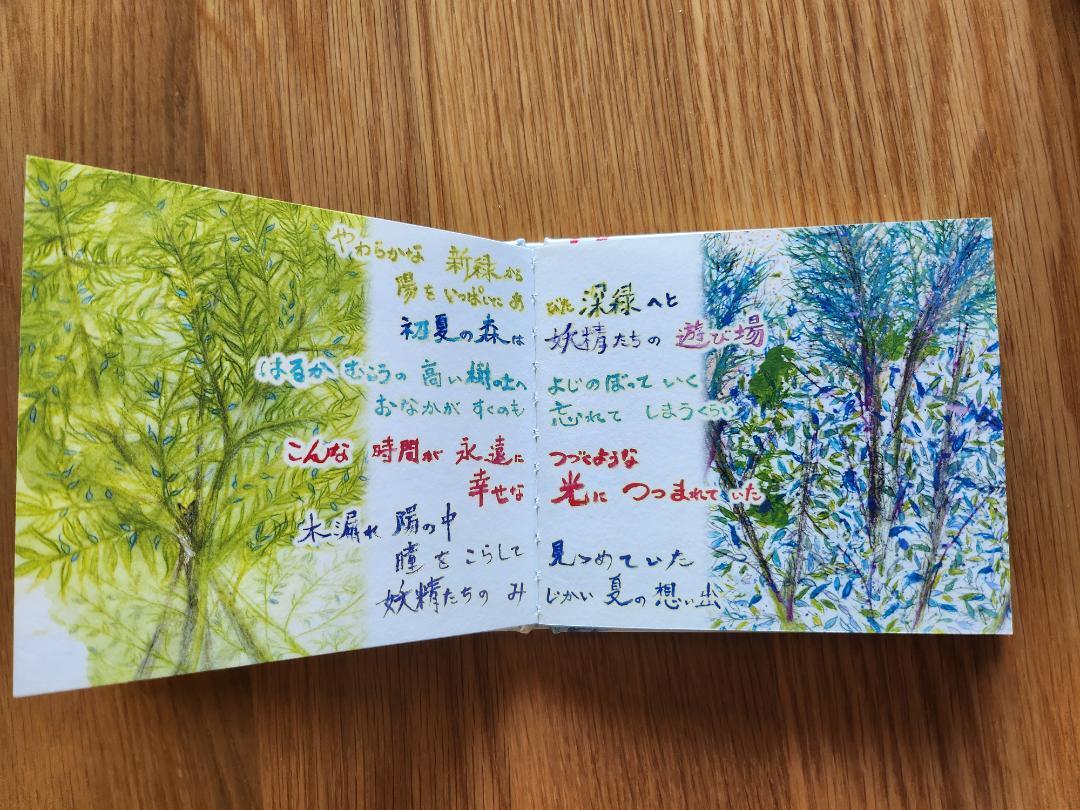 やわらかな 新緑から
陽をいっぱいにあびた 深緑へと
初夏の森は 妖精たちの 遊び場
はるか むこうの 高い樹の上へ よじのぼって いく
おなかが すくのも 忘れて しまうくらい
こんな 時間が 永遠に つづくような
幸せな 光に つつまれて いた
木漏れ 陽の中
瞳をこらして 見つめていた
妖精たちの みじかい 夏の想い出